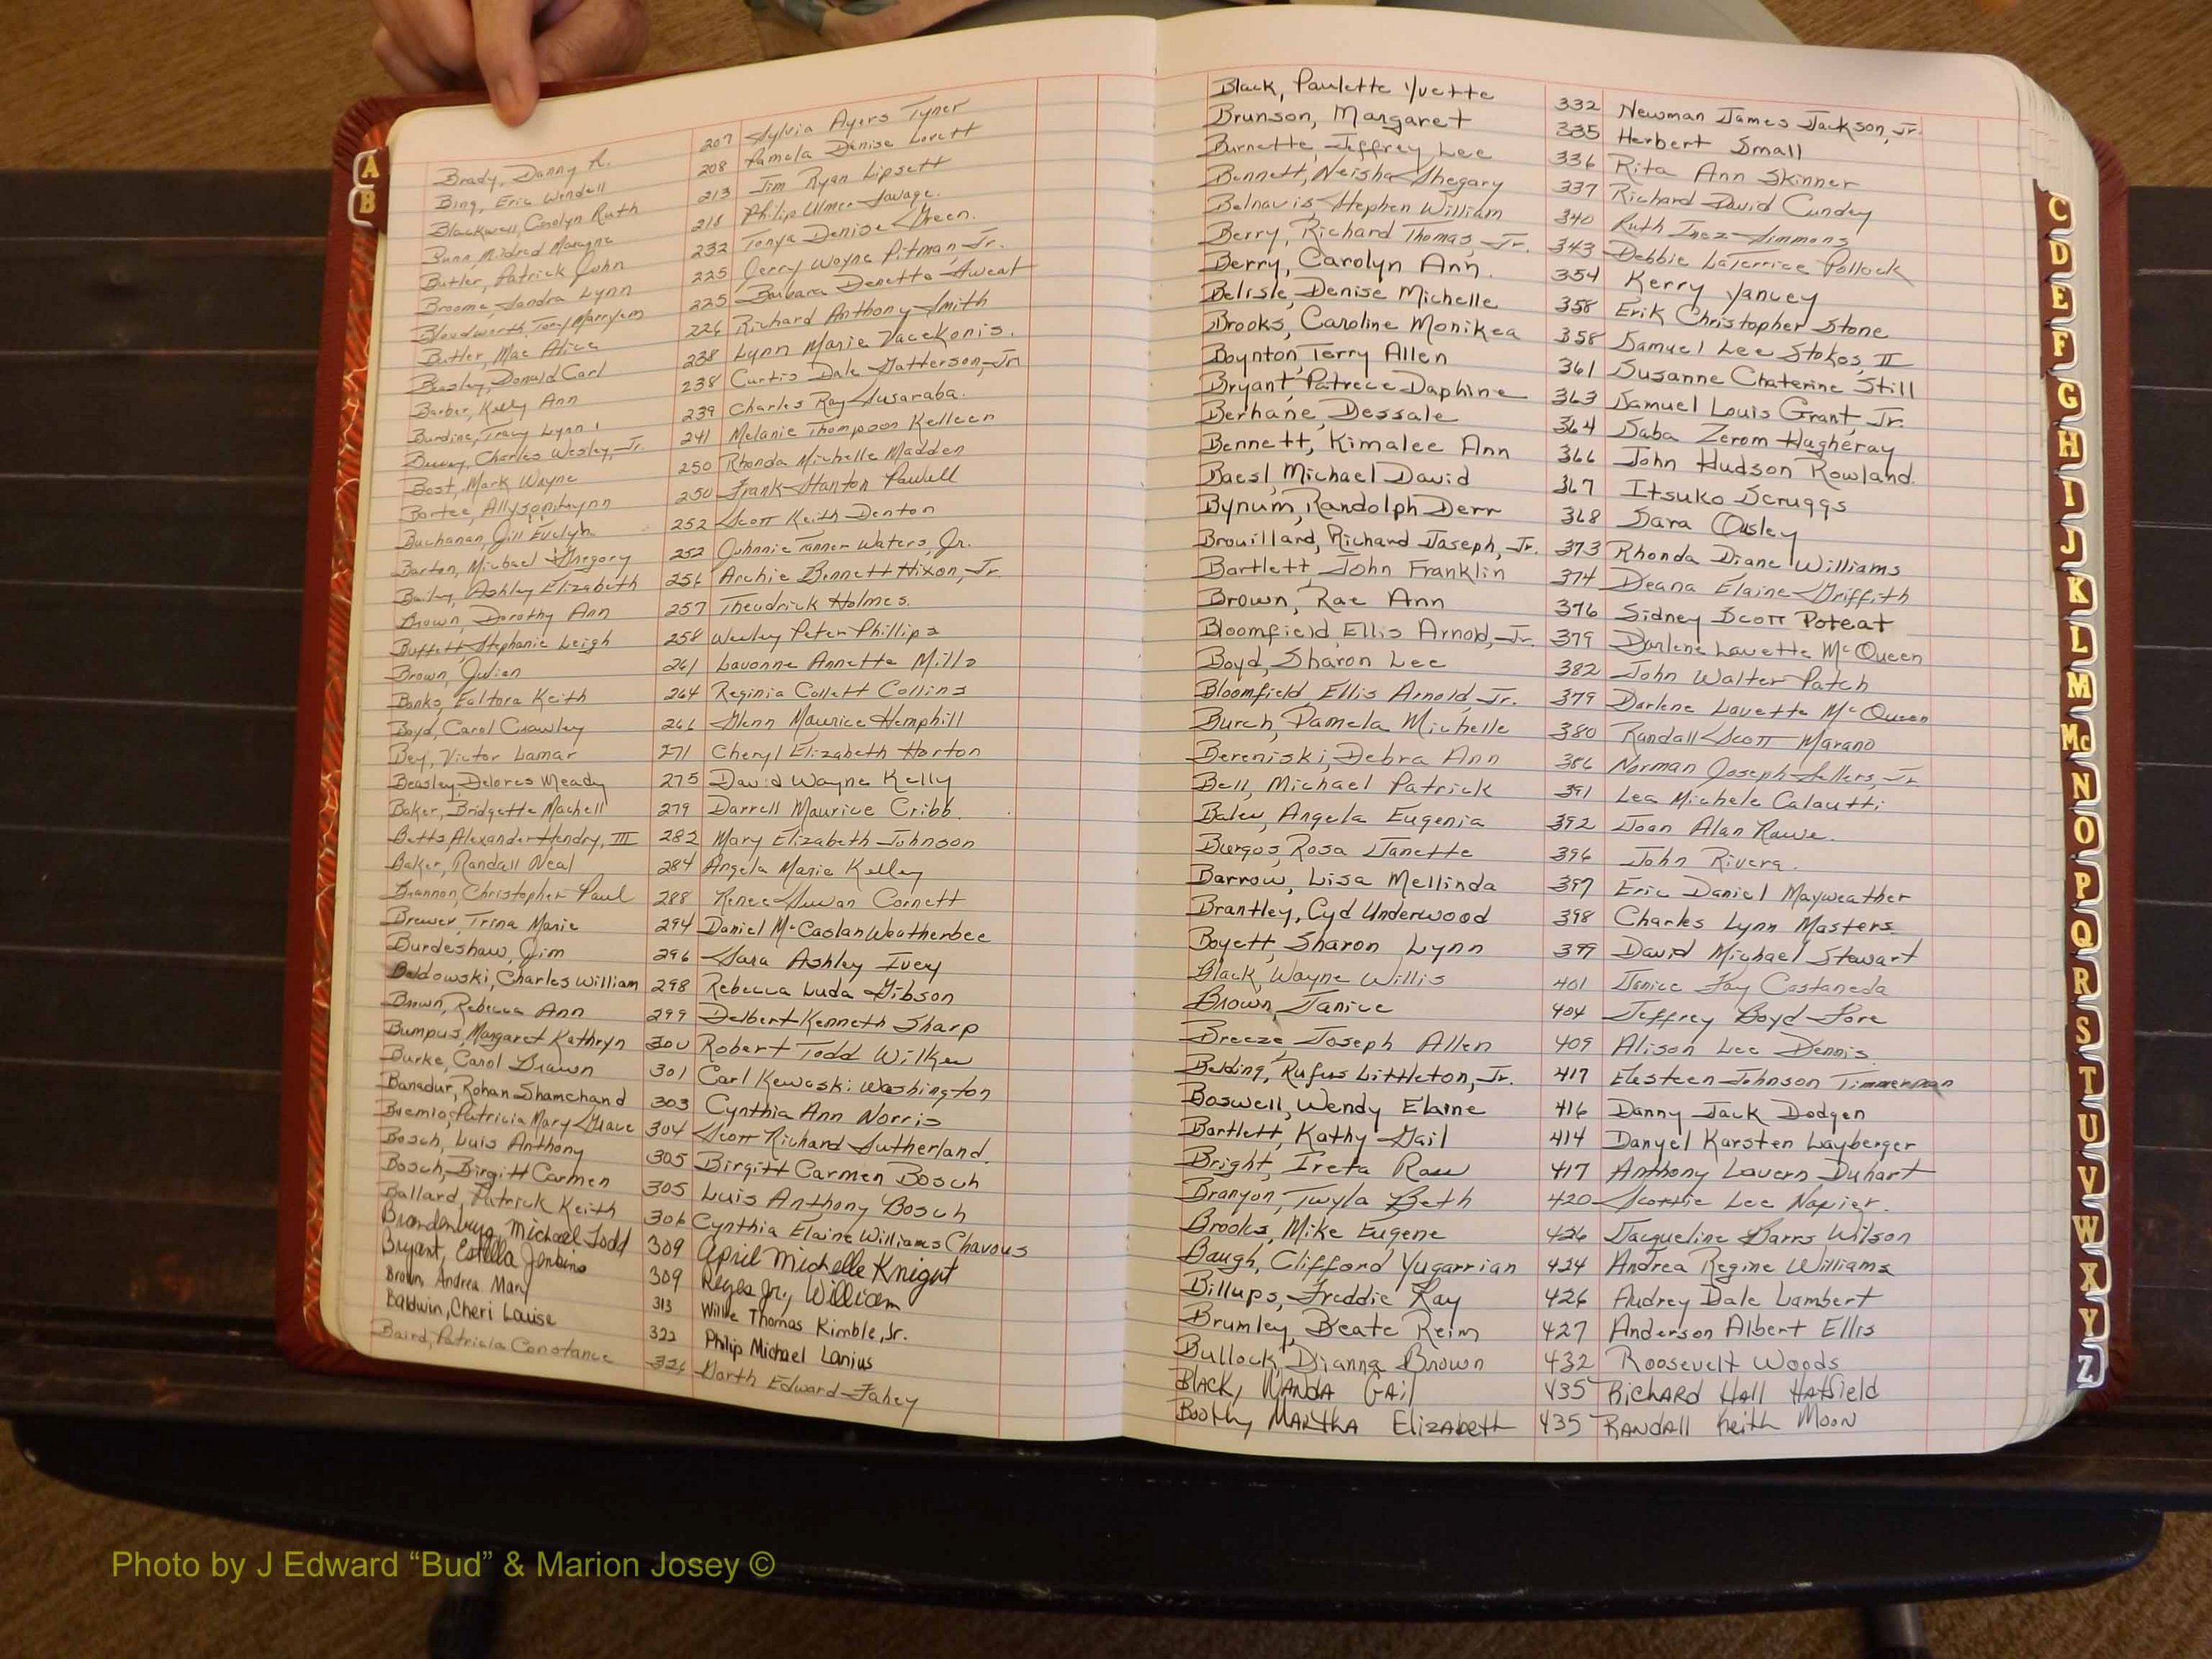 A
B
Brady, Danny R. 207 Sylvia Ayers Tyner
Bing, Eric Wendell 208 Pamela Denise Lovett
Blackwell, Carolyn Ruth 213 Jim Ryan Lipsett
Bunn, Mildred Marayne 218 Philip Ulmer Savage.
Butler, Patrick John 232 Tonya Denise Green.
Broome, Sandra Lynn 225 Jerry Wayne Pitman, Jr.
Bloodworth, Tony Marryem 225 Barbara Denette Sweat
Butler, Mae Alice 226 Richard Anthony Smith
Beasley, Donald Carl 238 Lynn Marie Vacekonis.
Barber, Kelly Ann 238 Curtis Dale Gatterson, Jr.
Burdine, Tracy Lynn 239 Charles Ray Susaraba.
Charles Wesley, Jr. 241 Melanie Thompson Kelleen
Bost, Mark Wayne 250 Rhonda Michelle Madden
Bartee, 250 Frank Stanton Powell
Buchanan, Jill Evelyn 252 Scott Keith Denton
Barton, Michael Gregory 252 Johnnie Tanner Waters, Jr.
Bailey, Ashley Elizabeth 256 Archie Bennett Hixon, Jr.
Brown, Dorothy Ann 257 Theodrick Holmes.
Buffett, Stephanie Leigh 258 Wesley Peter Phillips
Brown, Julian 261 Lavonne Annette Mills
Banks, Ealtora Keith 264 Reginia Collett Collins
Boyd, Carol Crawley 266 Glenn Maurice Hemphill
Bey, Victor Lamar 271 Cheryl Elizabeth Horton
Beasley, Delores Meady 275 David Wayne Kelly
Baker, Bridgette Machell 279 Darrell Maurice Cribb.
Betts, Alexander Hendry, III 282 Mary Elizabeth Johnson
Baker, Randall Neal 284 Angela Marie Kelley
Brannon, Christopher Paul 288 Renee Susan Cornett
Brewer, Trina Marie 294 Daniel McCaslan Weatherbee
Burdeshaw, Jim 296 Sara Ashley Ivey
Boldowski, Charles William 298 Rebecca Luda Gibson
Brown, Rebecca Ann 299 Delbert Kenneth Sharp
Bumpus, Margaret Kathryn 300 Robert Todd Wilkes
Burke, Carol Drawn 301 Carl Kewaski Washington
Banadur, Rohan Shamchand 303 Cynthia Ann Norris
Bremio, Patricia Mary Grace 304 Scott Richard Sutherland.
Bosch, Luis Anthony 305 Birgitt Carmen Bosch
Bosch, Birgitt Carmen 305 Luis Anthony Bosch
Ballard, Patrick Keith 306 Cynthia Elaine Williams Chavous
Brandenburg, Michael Todd 309 April Michelle Knight
Bryant, Estella Jenkins 309 Reyes Jr., William
Brown, Andrea Mary 313 Willie Thomas Kimble, Jr.
Baldwin, Cheri Louise 322 Philip Michael Lanius
Baird, Patricia Constance 326 Garth Edward Fahey
Black, Paulette Yvette 332 Newman James Jackson, Jr.
Brunson, Margaret 335 Herbert Small
Burnette, Jeffrey Lee 336 Rita Ann Skinner
Bennett, Neisha Shegary 337 Richard David Cundey
Belnavis, Stephen William 340 Ruth Inez Simmons
Berry, Richard Thomas, Jr. 343 Debbie LaTerrice Pollock
Berry, Carolyn Ann. 354 Kerry Yancey
Belisle, Denise Michelle 358 Erik Christopher Stone
Brooks, Caroline Monikea 358 Samuel Lee Stokes, II
Boynton, Terry Allen 361 Susanne Chaterine Still
Bryant, Patrece Daphine 363 Samuel Louis Grant, Jr.
Berhane, Dessale 364 Saba Zerom Hagheray
Bennett, Kimalee Ann 366 John Hudson Rowland.
Baesl, Michael David 367 Itsuko Scruggs
Bynum, Randolph Derr 368 Sara Ousley
Brouillard, Richard Joseph, Jr. 373 Rhonda Diane Williams
Bartlett, John Franklin 374 Deana Elaine Griffith
Brown, Rae Ann 376 Sidney Scott Poteat
Bloomfield, Ellis Arnold, Jr. 379 Darlene Lavette McQueen
Boyd, Sharon Lee 382 John Walter Patch
Bloomfield, Ellis Arnold, Jr. 379 Darlene Lavette McQueen
Burch, Pamela Michelle 380 Randall Scott Marano
Bereniski, Debra Ann 386 Norman Joseph Sellers, Jr
Bell, Michael Patrick 391 Lea Michele Calautti
Bales, Angela Eugenia 392 Joan Alan Rawe.
Burgos, Rosa Janette 396 John Rivera.
Barrow, Lisa Mellinda 397 Eric Daniel Mayweather
Brantley, Cyd Underwood 398 Charles Lynn Masters
Boyett, Sharon Lynn 399 David Michael Stewart
Black, Wayne Willis 401 Janice Fay Castaneda
Brown, Janice 404 Jeffrey Boyd Fore
Breeze, Joseph Allen 409 Alison Lee Dennis.
Belding, Rufus Littleton, Jr. 417 Elesteen Johnson Timmerman
Boswell, Wendy Elaine 416 Danny Jack Dodgen
Bartlett, Kathy Gail 414 Danyel Karsten Layberger
Bright, Ireta Raw 417 Anthony Lavern Duhart
Branyon, Twyla Beth 420 Scottie Lee Napier.
Brooks, Mike Eugene 426 Jacqueline Barrs Wilson
Baugh, Clifford Yugarrian 424 Andrea Regine Williams
Billups, Freddie Ray 426 Audrey Dale Lambert
Brumley, Beate Reim 427 Anderson Albert Ellis
Bullock, Dianna Brown 432 Roosevelt Woods
BLACK, WANDA GAil 435 RichARD HAll HAtfield
Boothy, MARTHA ElizAbeth 435 RANDAll Keith Moon
C
D
E
F
G
H
I
J
K
L
M
Mc
N
O
P
Q
R
S
T
U
V
W
X
Y
Z
Photo by J Edward “Bud” & Marion Josey ©